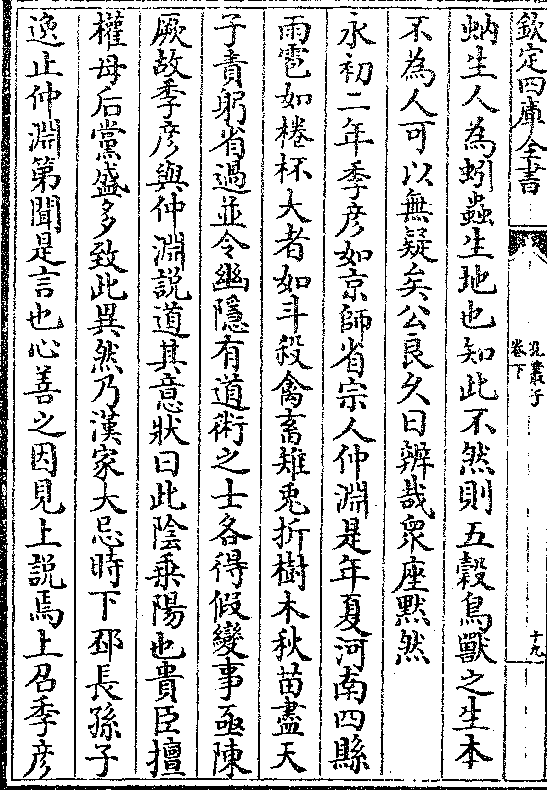 欽定四庫全書
孔叢子
卷下
十九
蚋生人為蚓蟲生地也知此不然則五穀鳥獸之生本
不為人可以無疑矣公良久曰辨哉衆座黙然
永初二年季彦如京師省宗人仲淵是年夏河南四縣
雨雹如棬杯大者如斗殺禽畜雉兎折樹木秋苗盡天
子責躬省過並令幽隱有道術之士各得假變事亟陳
厥故季彦與仲淵説道其意狀曰此陰乗陽也貴臣擅
權母后黨盛多致此異然乃漢家大忌時下邳長孫子
逸止仲淵第聞是言也心善之因見上説焉上召季彦